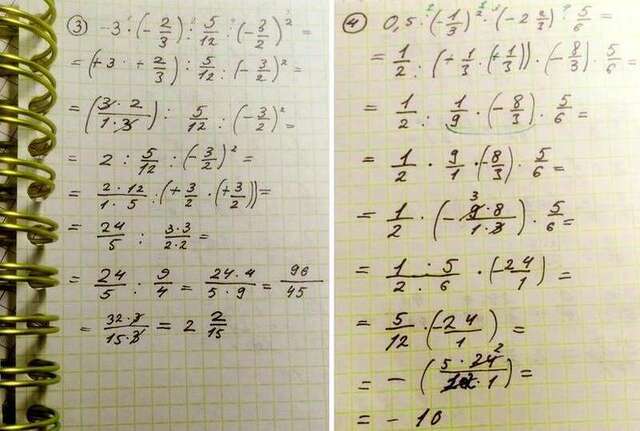 ③ -3 · (-2/3) : 5/12 : (-3/2)² =
= (+3 · +2/3) : 5/12 : (-3/2)² =
= (3 · 2 / 1 · 3) : 5/12 : (-3/2)² =
= 2 : 5/12 : (-3/2)² =
= 2 · 12 / 1 · 5 : (+3/2 · (+3/2)) =
= 24/5 : 3·3 / 2·2 =
= 24/5 : 9/4 = 24·4 / 5·9 = 96/45
= 32·3 / 15·3 = 2 2/15
④ 0,5 : (-1/3)² · (-2 2/3) · 5/6 =
= 1/2 : (+1/3 · (+1/3)) · (-8/3) · 5/6 =
= 1/2 : 1/9 · (-8/3) · 5/6 =
= 1/2 · 9/1 · (-8/3) · 5/6 =
= 1/2 · (- 9 3 · 8 / 1 · 3) · 5/6 =
= 1 · 5 / 2 · 6 · (-24/1) =
= 5/12 · (-24/1) =
= - (5 · 24 2 / 12 · 1) =
= - 10